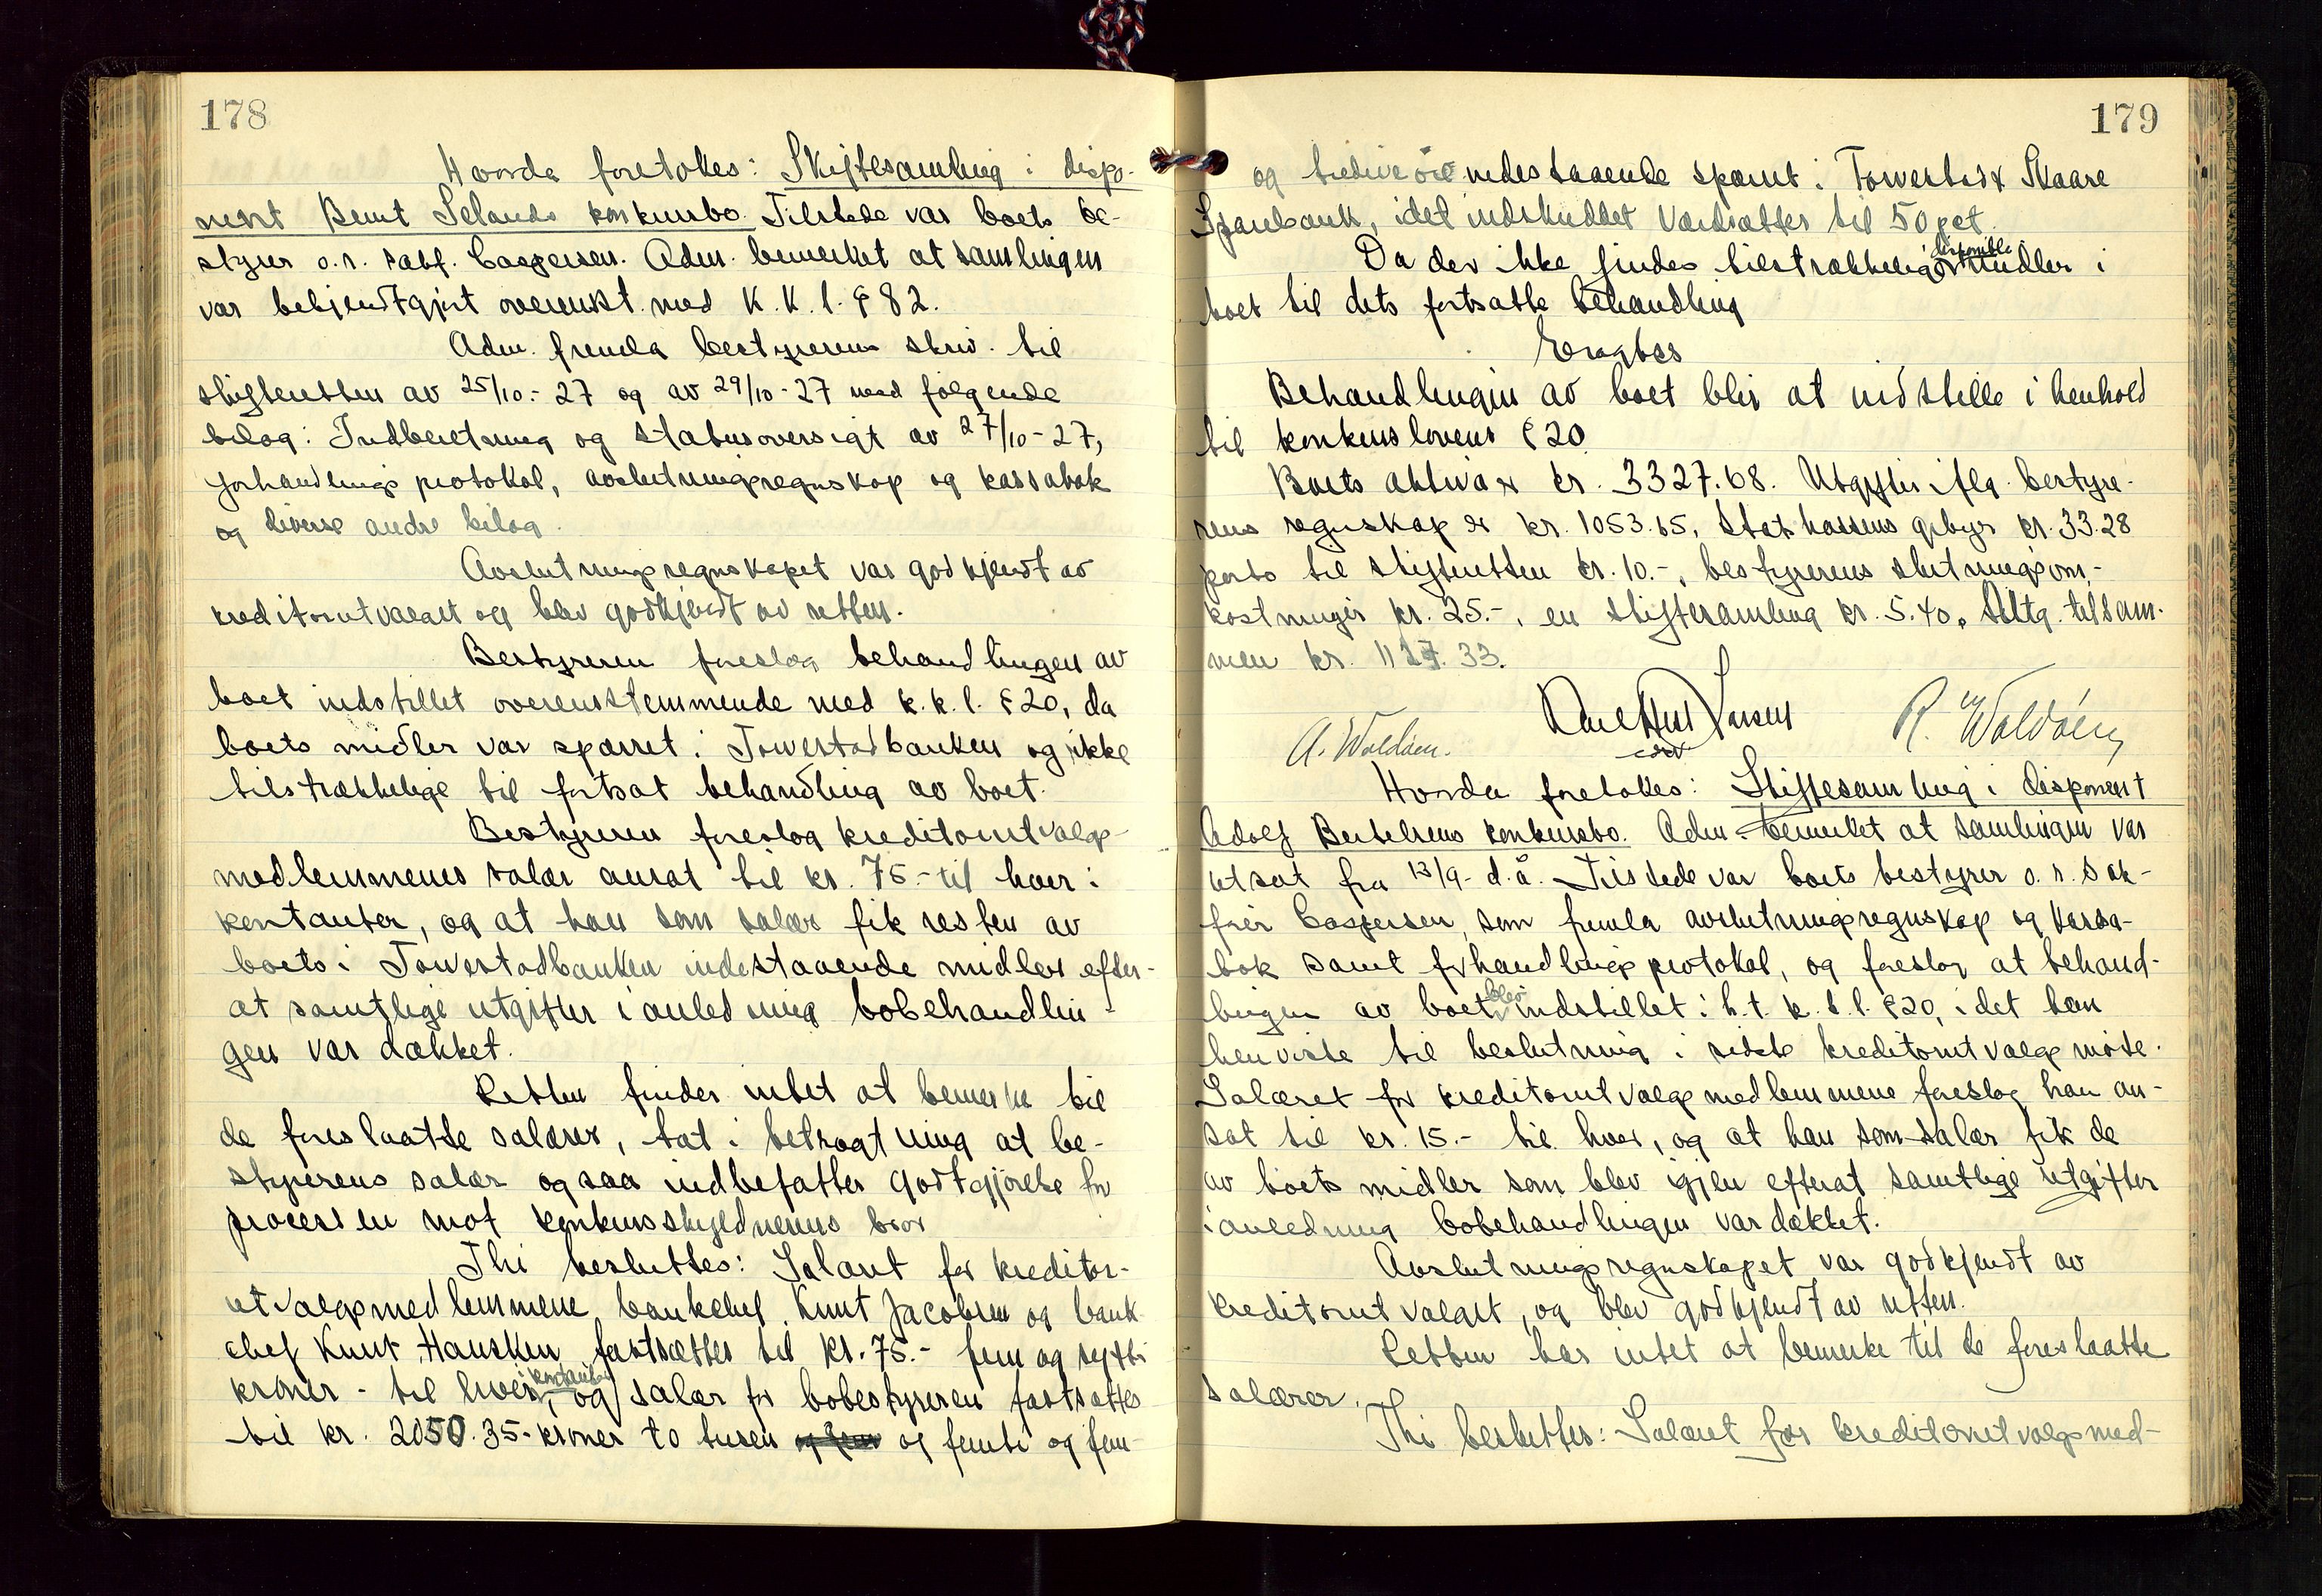 178
Hvorda foretokes: Skiftesamling i dispo-
nent Bernt Selands konkursbo. Tilstede var boets be-
styrer o.r. sakf. Caspersen. Adm. bemerket at samlingen
var bekjendtgjort overenst. med K.K.l. § 82.
Adm. fremla bestyrerens skriv. til
skifteretten av 25/10-27 og av 29/10-27 med følgende
bilag: Indberetning og statusoversigt av 27/10-27,
forhandlingsprotokol, avslutningsregnskap og kassabok
og diverse andre bilag.
Avslutningsregnskapet var godkjendt av
kreditorutvalget og blev godkjendt av retten.
Bestyreren foreslog behandlingen av
boet indstillet overensstemmende med k.k.l. § 20, da
boets midler var sparret i Torvestadbanken og ikke
tilstrækkelige til fortsat behandling av boet.
Bestyreren foreslog kreditorutvalgs-
medlemmenes salær ansat til kr. 75.- til hver i
kontanter, og at han som salær fik resten av
boets i Torvestadbanken indestaaende midler efter-
at samtlige utgifter i anledning bobehandlin-
gen var dækket.
Retten finder intet at bemerke til
de foreslaatte salærer, tat i betragtning at be-
styrerens salær ogsaa indbefatter godtgjørelse for
processen mot konkursskyldnerens bror
Thi besluttes: Salæret for kreditor-
utvalgsmedlemmene banksjef Knut Jacobsen og bank-
chef Knut Hausken fastsættes til kr. 75.- fem og sytti
kroner - til hver, kontanter og salær for bobestyreren fastsættes
til kr. 2050.35- kroner to tusen og femti og fem-
179
og tredive øre indestaaende sparret i Torvestad & Skaare
Sparebank, idet indskuddet værdsættes til 50 pct.
Da der ikke findes tilstrækkelig disponible midler i
boet til dets fortsatte behandling
Eragtes
Behandlingen av boet blir at indstille i henhold
til konkurslovens § 20.
Boets aktiva er kr. 3327.68. Utgifter iflg. bestyre-
rens regnskap er kr. 1053.65, Statskassens gebyr kr. 33.28
porto til skifteretten kr. 10.-, bestyrerens slutningsom-
kostninger kr. 25.-, en skiftesamling kr. 5.40. Altg. tilsam-
men kr. 1127.33.
A. Waldøen. R. Waldøen
Hvorda foretokes: Skiftesamling i disponent
Adolf Bertelsens konkursbo. Adm. bemerket at samlingen var
utsat fra 13/9- d.å. Tilstede var boets bestyrer o.r. sak-
fører Caspersen, som fremla avslutningsregnskap og kassa-
bok samt forhandlingsprotokol, og foreslog at behand-
lingen av boet blev indstillet i h.t. k.k.l. § 20, idet han
henviste til beslutning i sidste kreditorutvalgsmøte.
Salæret for kreditorutvalgsmedlemmene foreslog han an-
sat til kr. 15.- til hver, og at han som salær fik de
av boets midler som blev igjen efterat samtlige utgifter
i anledning bobehandlingen var dækket.
Avslutningsregnskapet var godkjendt av
kreditorutvalget, og blev godkjendt av retten.
Retten har intet at bemerke til de foreslaatte
salærer.
Thi besluttes: Salæret for kreditorutvalgsmed-